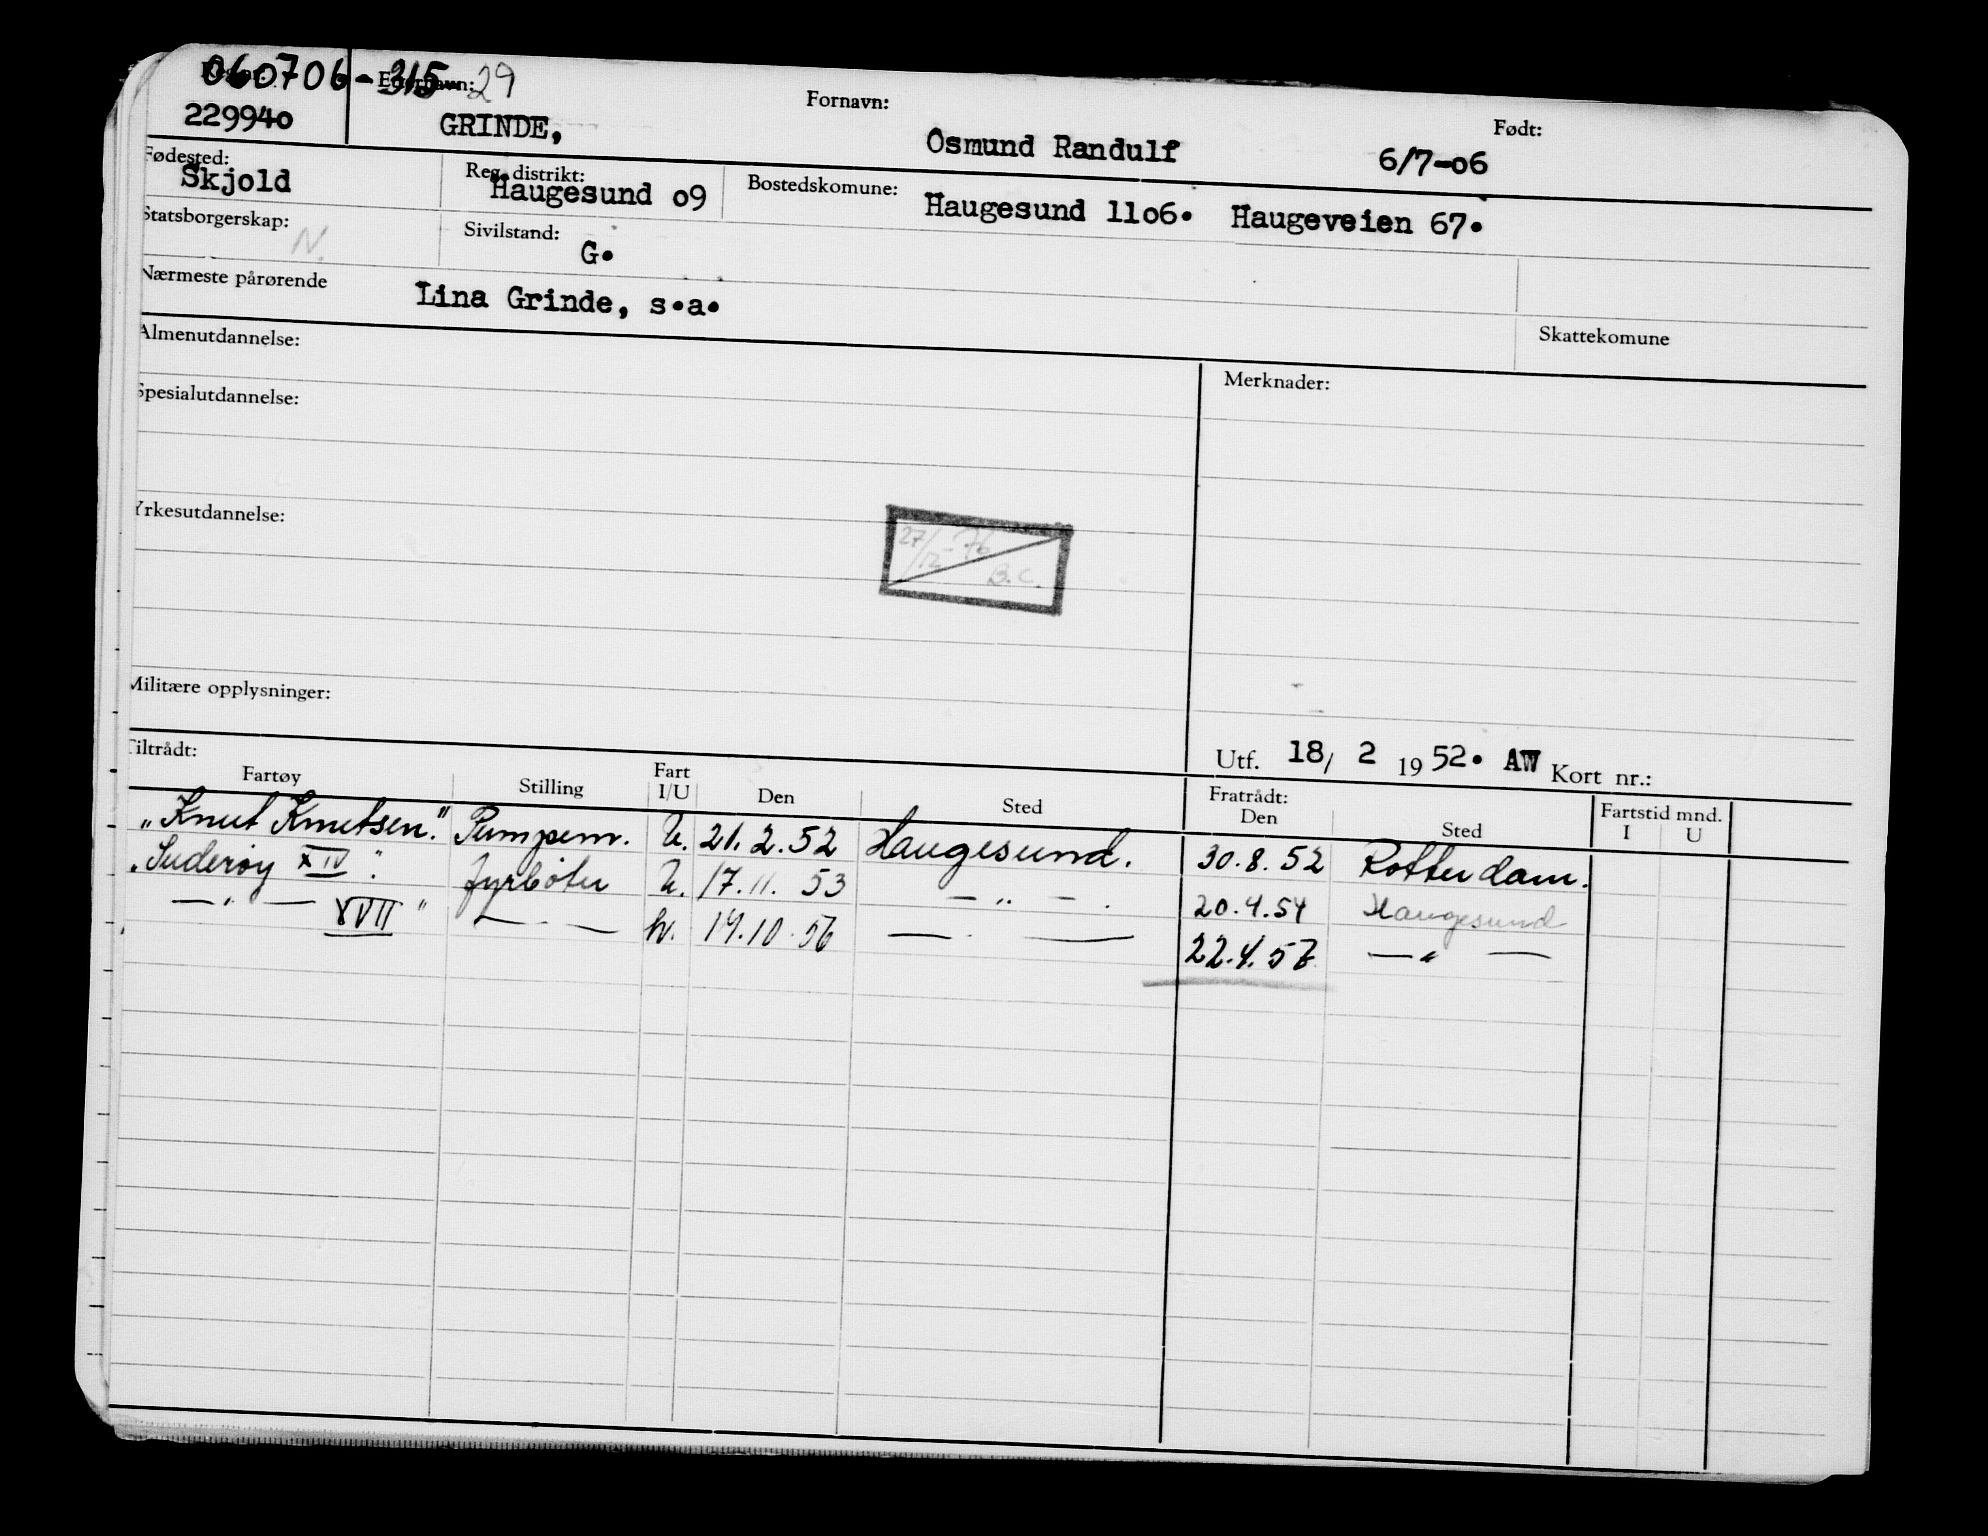 060706-315 29
Etternavn:
Fornavn:
Født:
229940
GRINDE,
Osmund Randulf
6/7-06
Fødested:
Skjold
Reg. distrikt:
Haugesund o9
Bostedskomune:
Haugesund 11o6. Haugeveien 67.
Statsborgerskap:
N.
Sivilstand:
G.
Nærmeste pårørende
Lina Grinde, s.a.
Almenutdannelse:
Skattekomune
Merknader:
Spesialutdannelse:
Yrkesutdannelse:
27/12-76
B.C.
Militære opplysninger:
Utf. 18/ 2 1952. AW Kort nr.:
Tiltrådt:
Fratrådt:
Fartstid mnd.
Fartøy Stilling Fart I/U Den Sted Den Sted I U
„Knut Knutsen." Pumpem. U. 21.2.52 Haugesund. 30.8.52 Rotterdam.
„Suderøy XIV". fyrbøter U. 17.11.53 — „ — . 20.4.54 Haugesund
— „ — XVII" — „ — 14.10.56 — „ — 22.4.57 — „ —